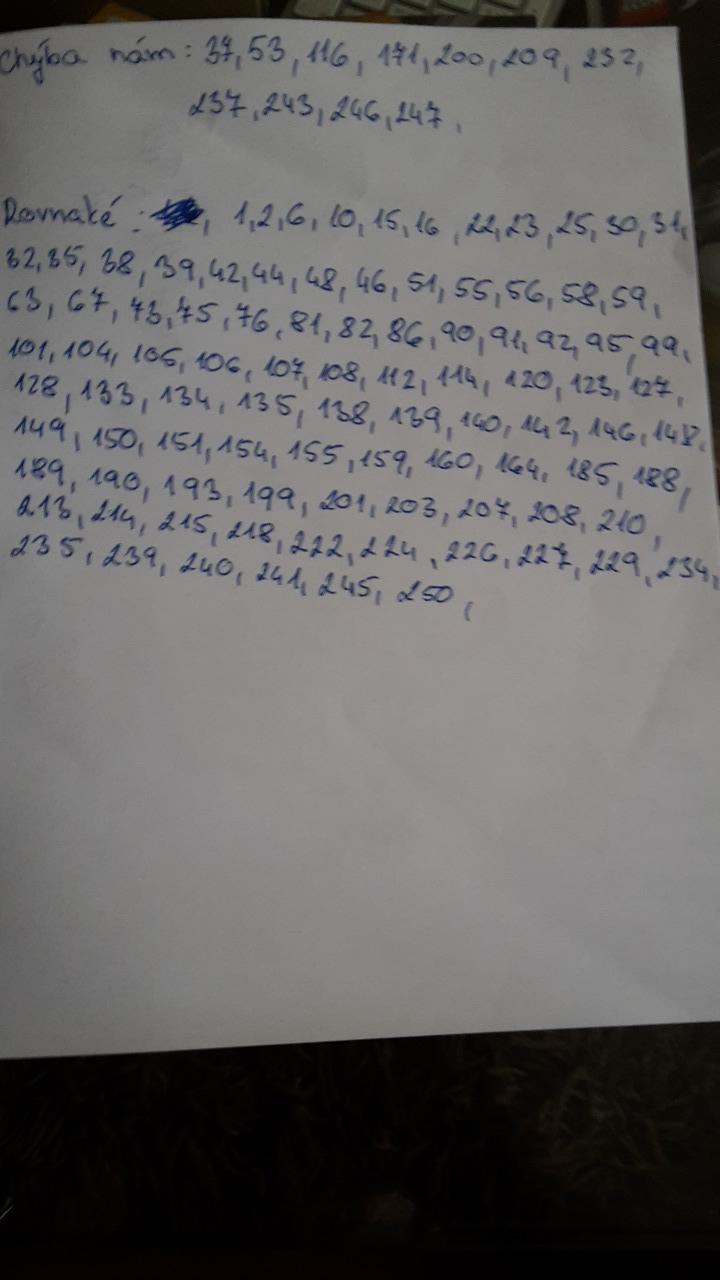 Chýba nám: 37, 53, 116, 171, 200, 209, 232,
237, 243, 246, 247,
Rovnaké: , 1, 2, 6, 10, 15, 16, 22, 23, 25, 30, 31,
32, 35, 38, 39, 42, 44, 48, 46, 51, 55, 56, 58, 59,
63, 67, 73, 75, 76, 81, 82, 86, 90, 91, 92, 95, 99,
101, 104, 105, 106, 107, 108, 112, 114, 120, 123, 127,
128, 133, 134, 135, 138, 139, 140, 142, 146, 148.
149, 150, 151, 154, 155, 159, 160, 164, 185, 188,
189, 190, 193, 199, 201, 203, 207, 208, 210,
213, 214, 215, 218, 222, 224, 226, 227, 229, 234,
235, 239, 240, 241, 245, 250,